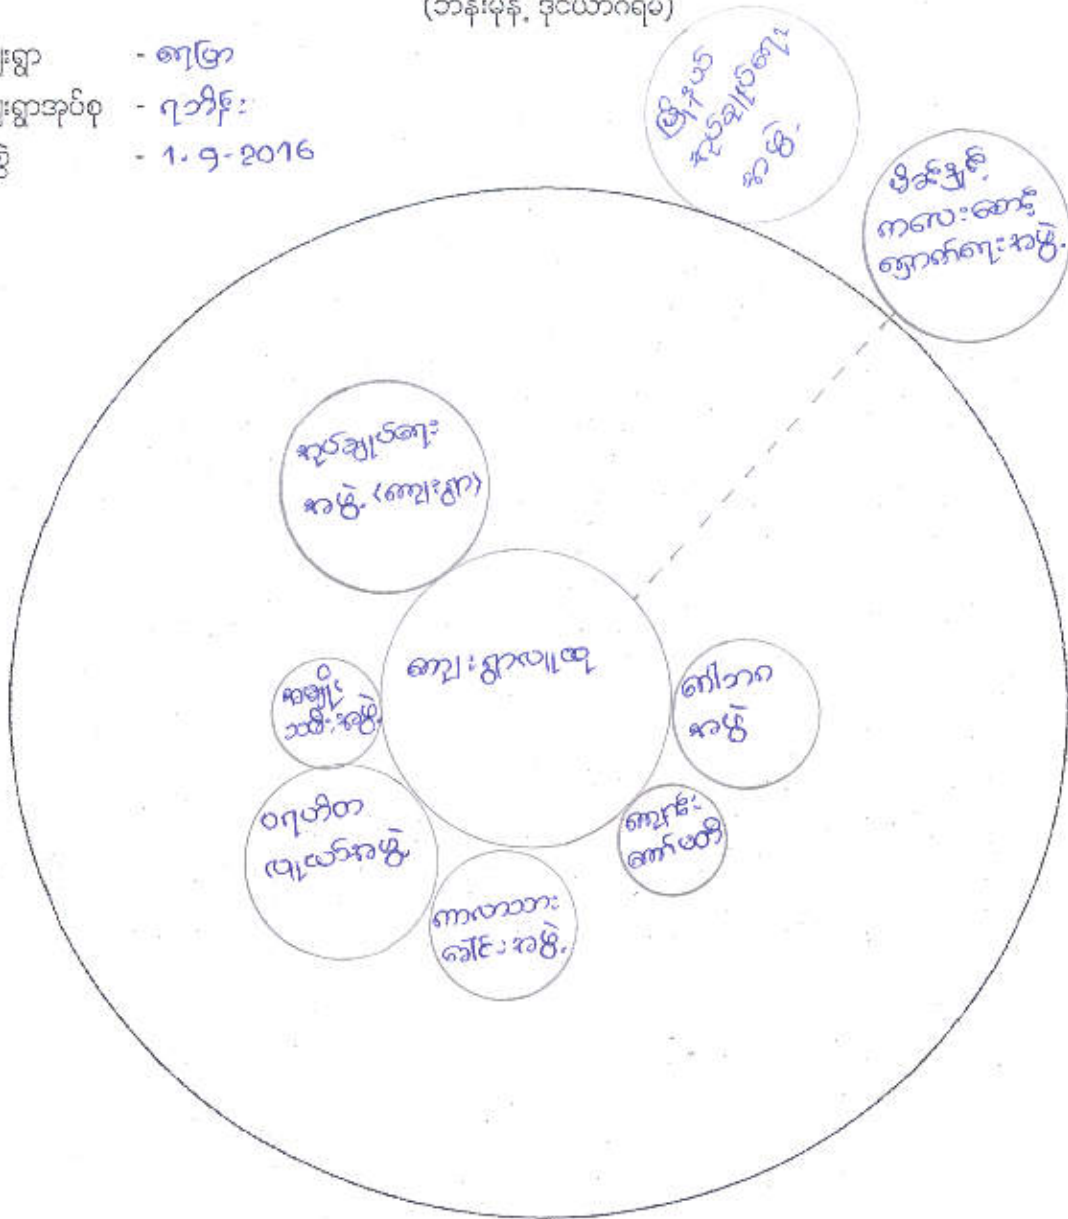 (ဘန်းမုန့် ဒိုင်ယာဂရမ်)
ရွာ - ရေပြာ
ရွာအုပ်စု - ရဘိန်း
- 1.9-2016
မြို့နယ်
အုပ်ချုပ်ရေး
အဖွဲ့
မိခင်နှင့်
ကလေးစောင့်
ရှောက်ရေးအဖွဲ့
အုပ်ချုပ်ရေး
အဖွဲ့ (ကျေးရွာ)
ကျေးရွာလူထု
အမျိုး
သမီးအဖွဲ့
ဂေါပက
အဖွဲ့
ပရဟိတ
လူငယ်အဖွဲ့
ကျောင်း
ကော်မတီ
ကာလသား
ခေါင်းအဖွဲ့